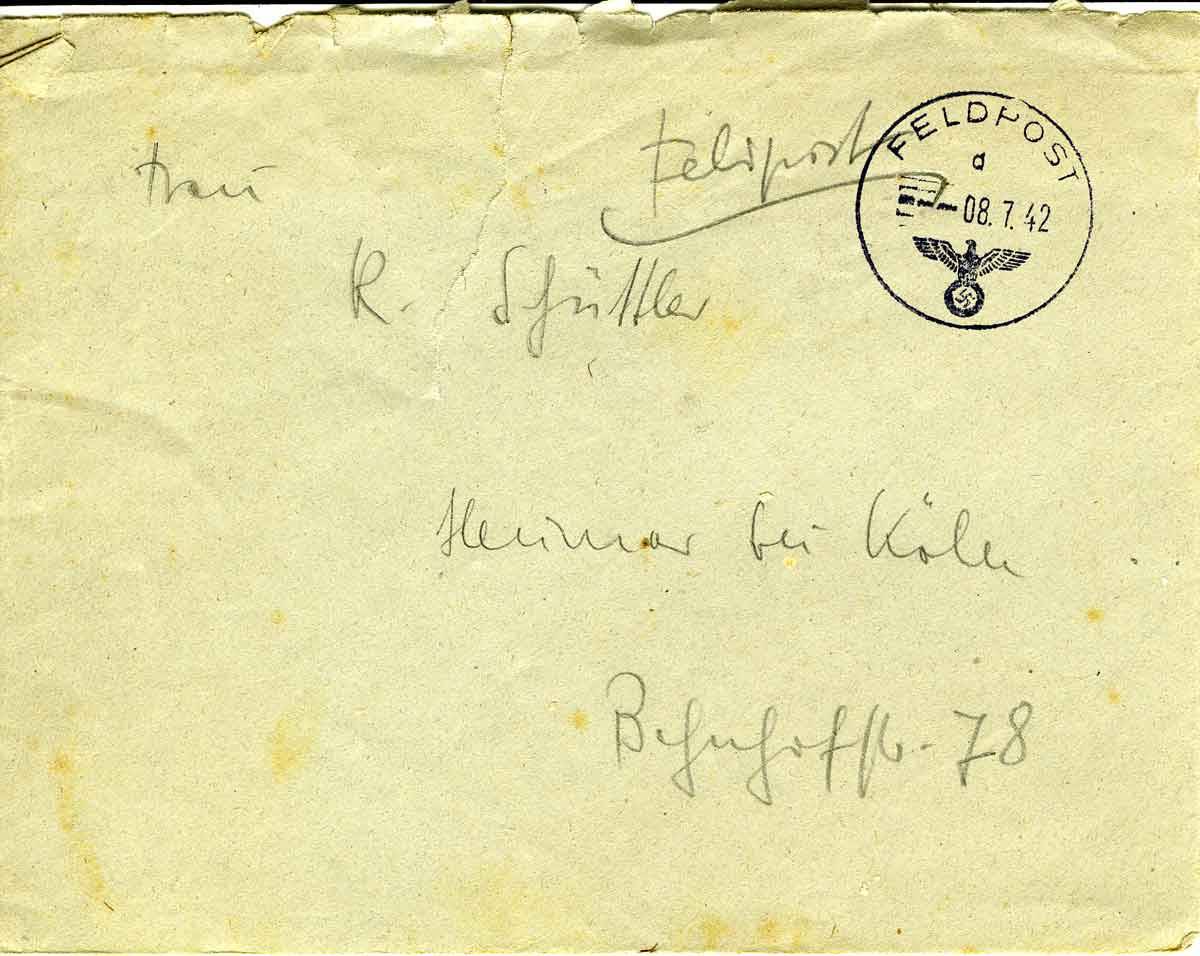 Feldpost
FELDPOST
a
08.7.42
Frau
R. Schüttler
Heumar bei Köln
Bahnhofstr. 78